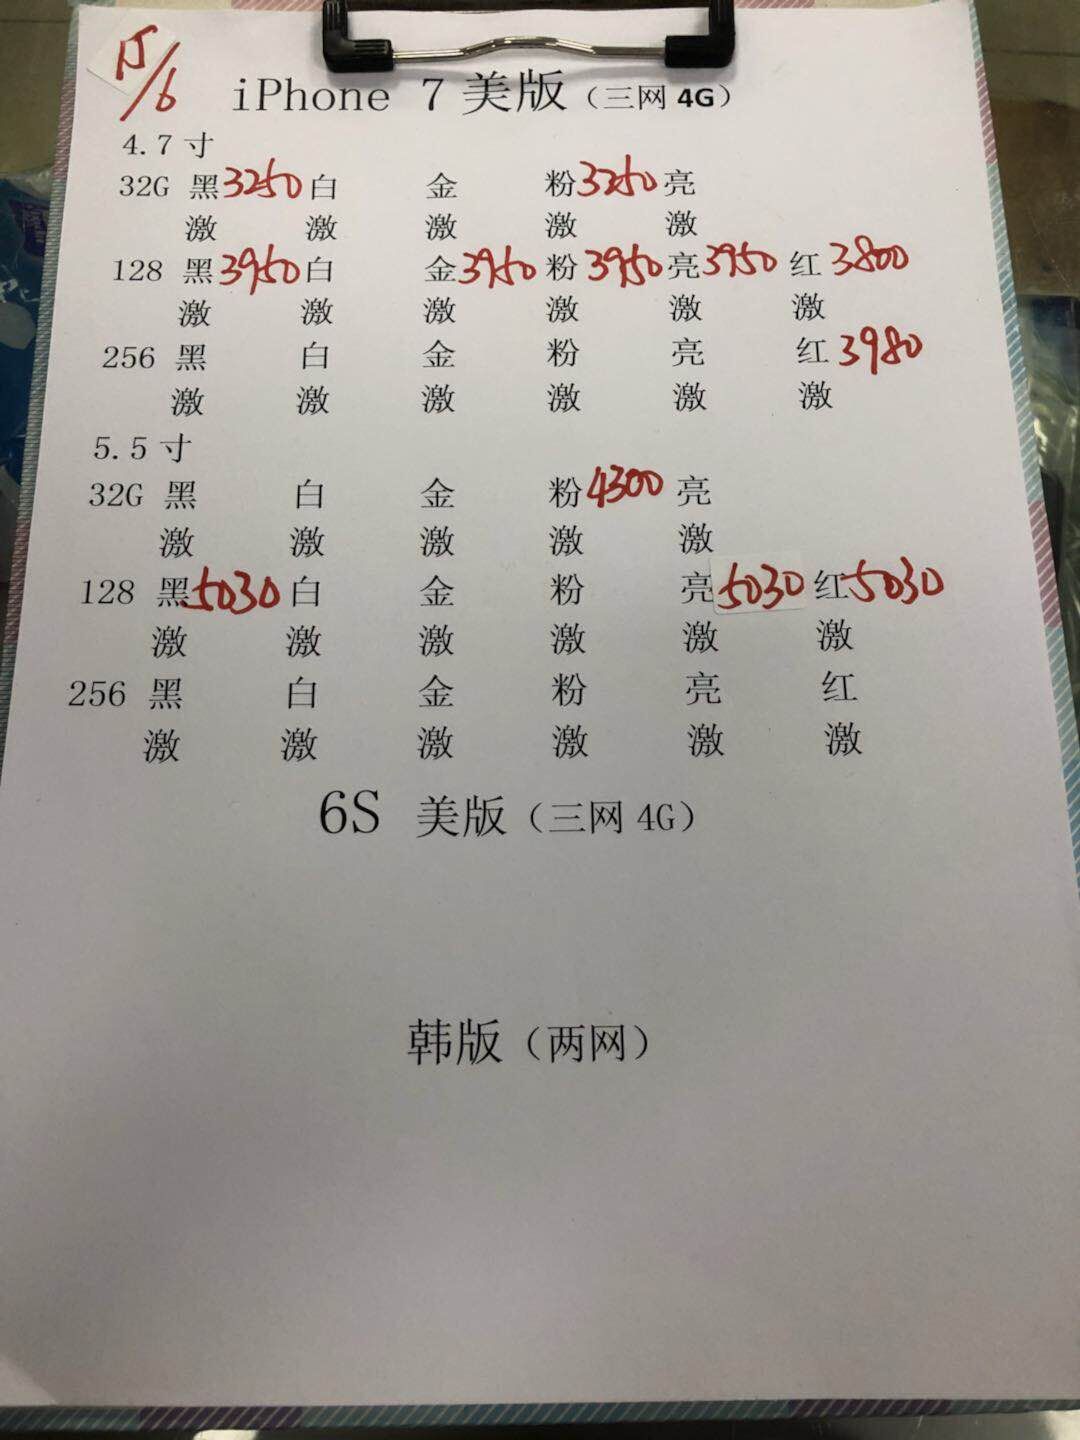 15/6
iPhone 7 美版（三网 4G）
4.7 寸
32G 黑 3250 白 金 粉 3250 亮
激 激 激 激 激
128 黑 3950 白 金 3950 粉 3950 亮 3950 红 3800
激 激 激 激 激 激
256 黑 白 金 粉 亮 红 3980
激 激 激 激 激 激
5.5 寸
32G 黑 白 金 粉 4300 亮
激 激 激 激 激
128 黑 5030 白 金 粉 亮 5030 红 5030
激 激 激 激 激 激
256 黑 白 金 粉 亮 红
激 激 激 激 激 激
6S 美版（三网 4G）
韩版（两网）